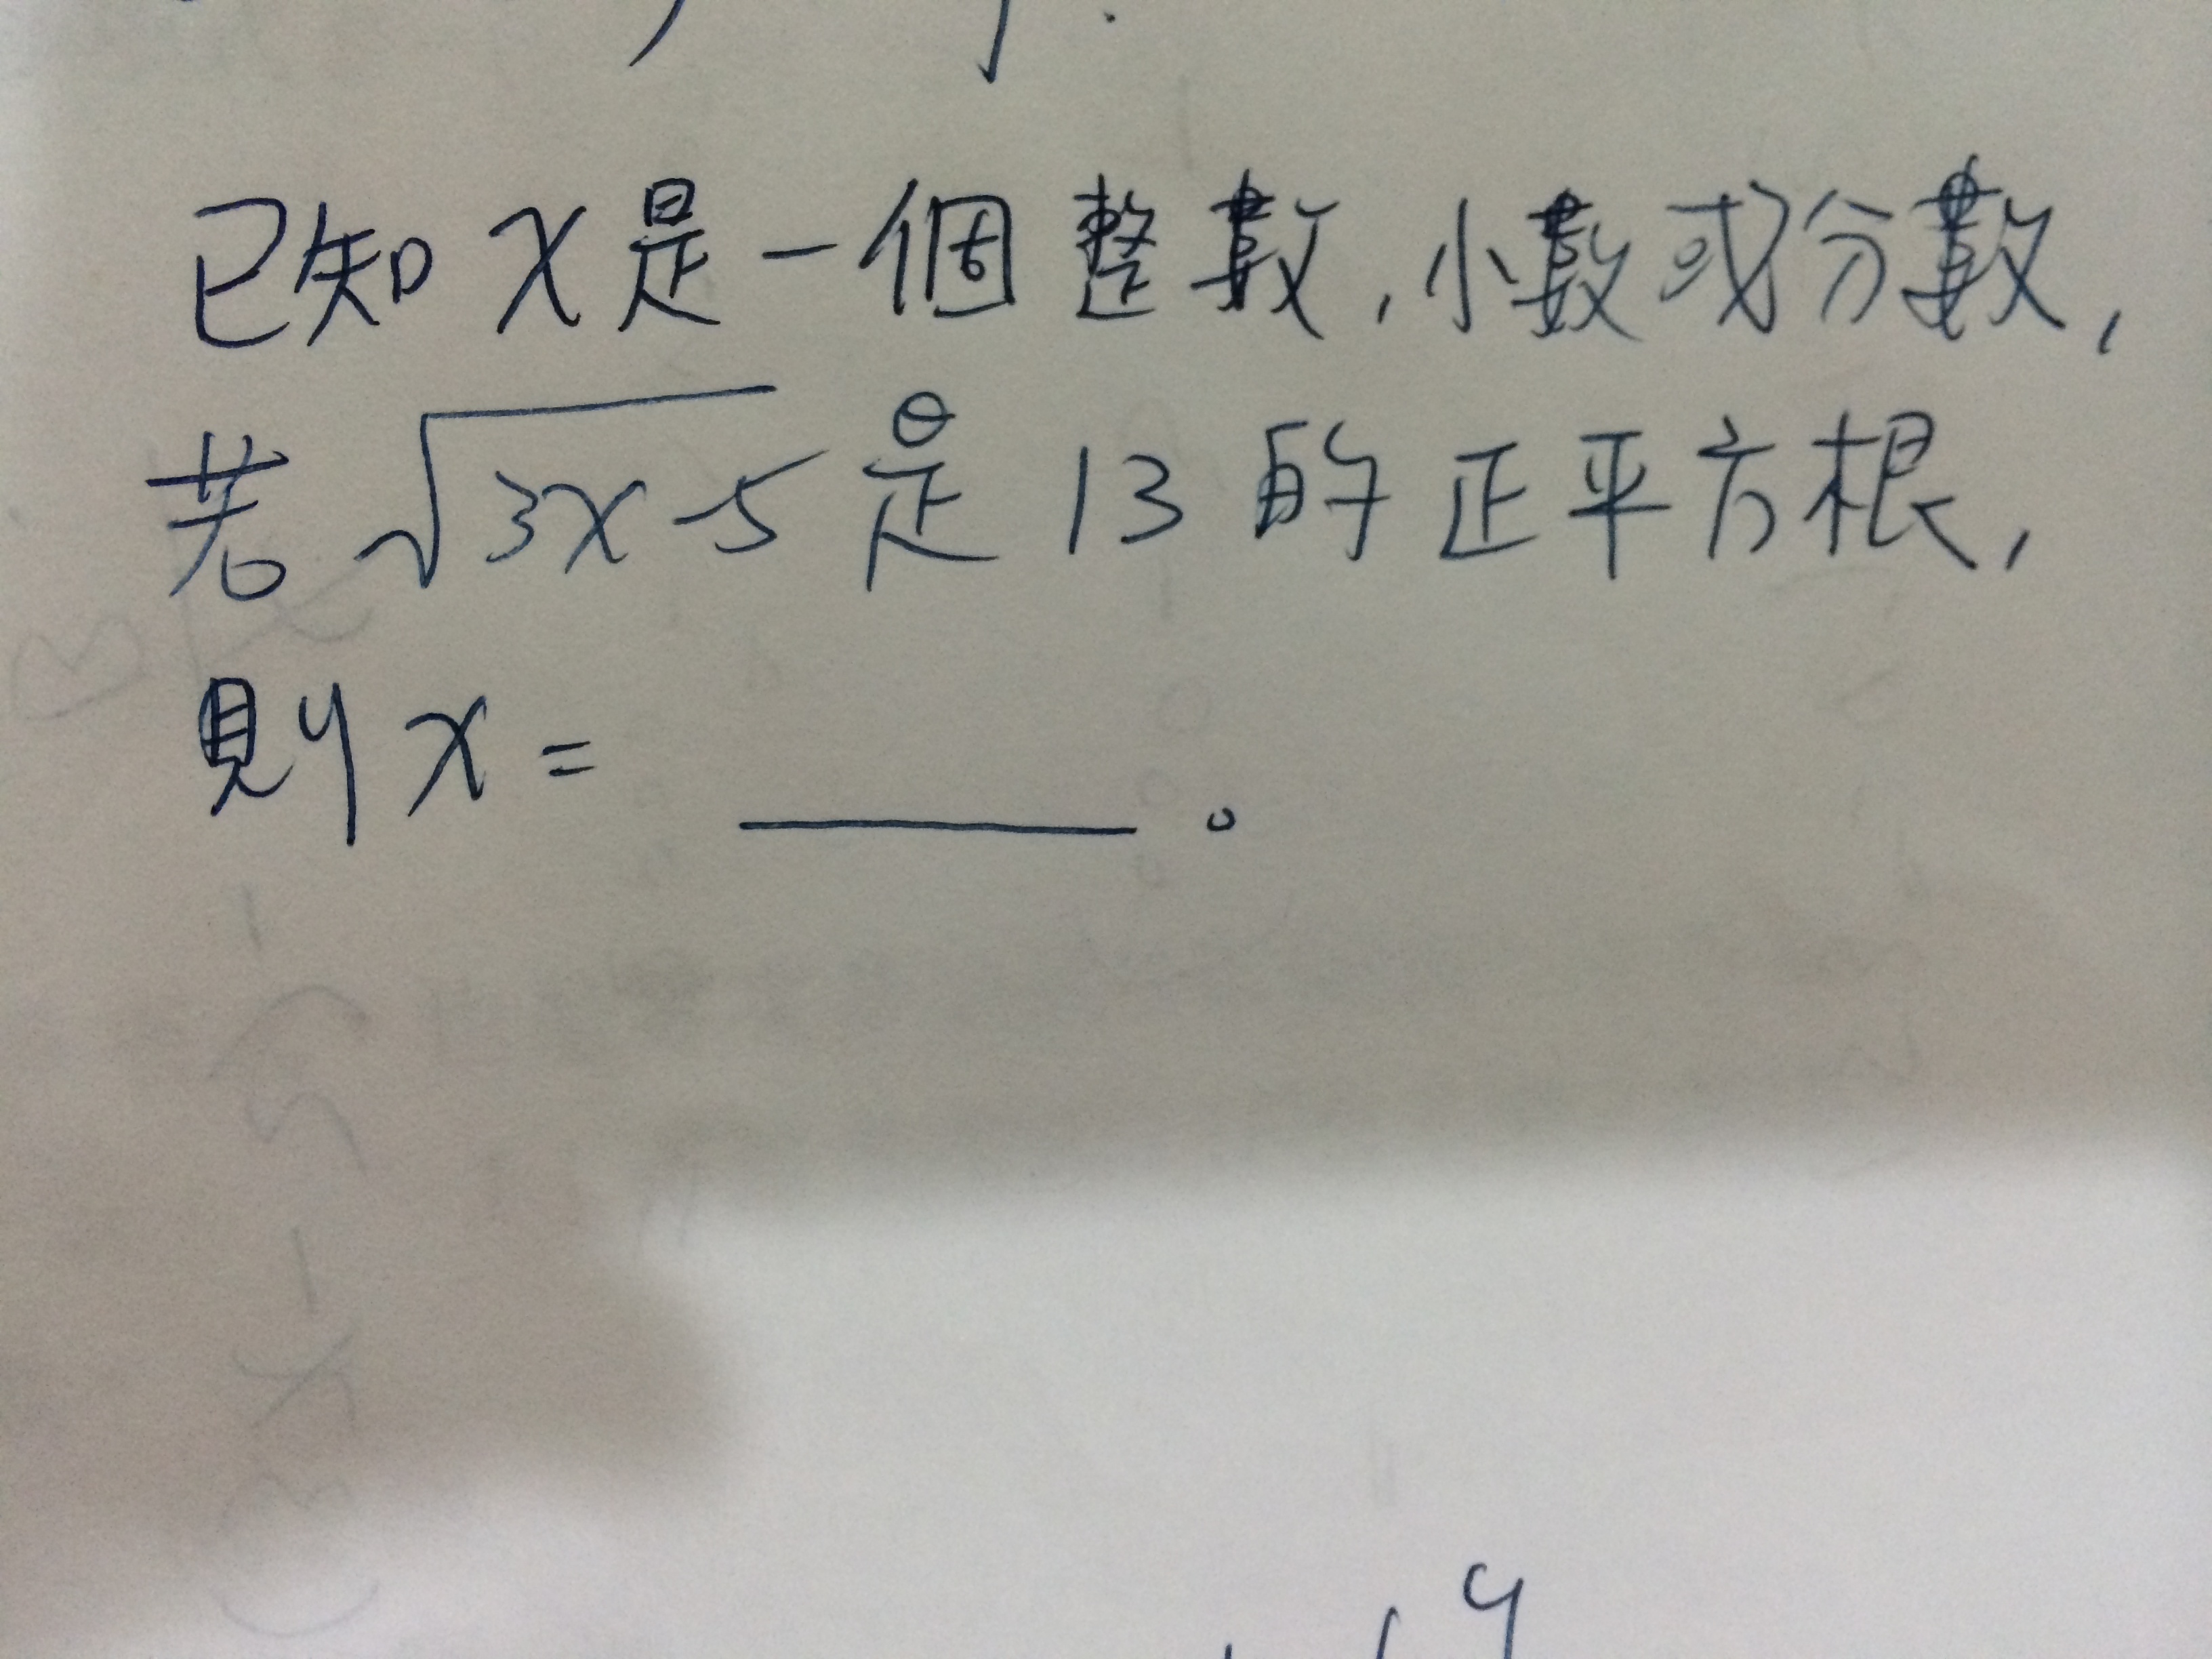 已知x是一個整數，小數或分數，
若√3x-5是13的正平方根，
則x=______。